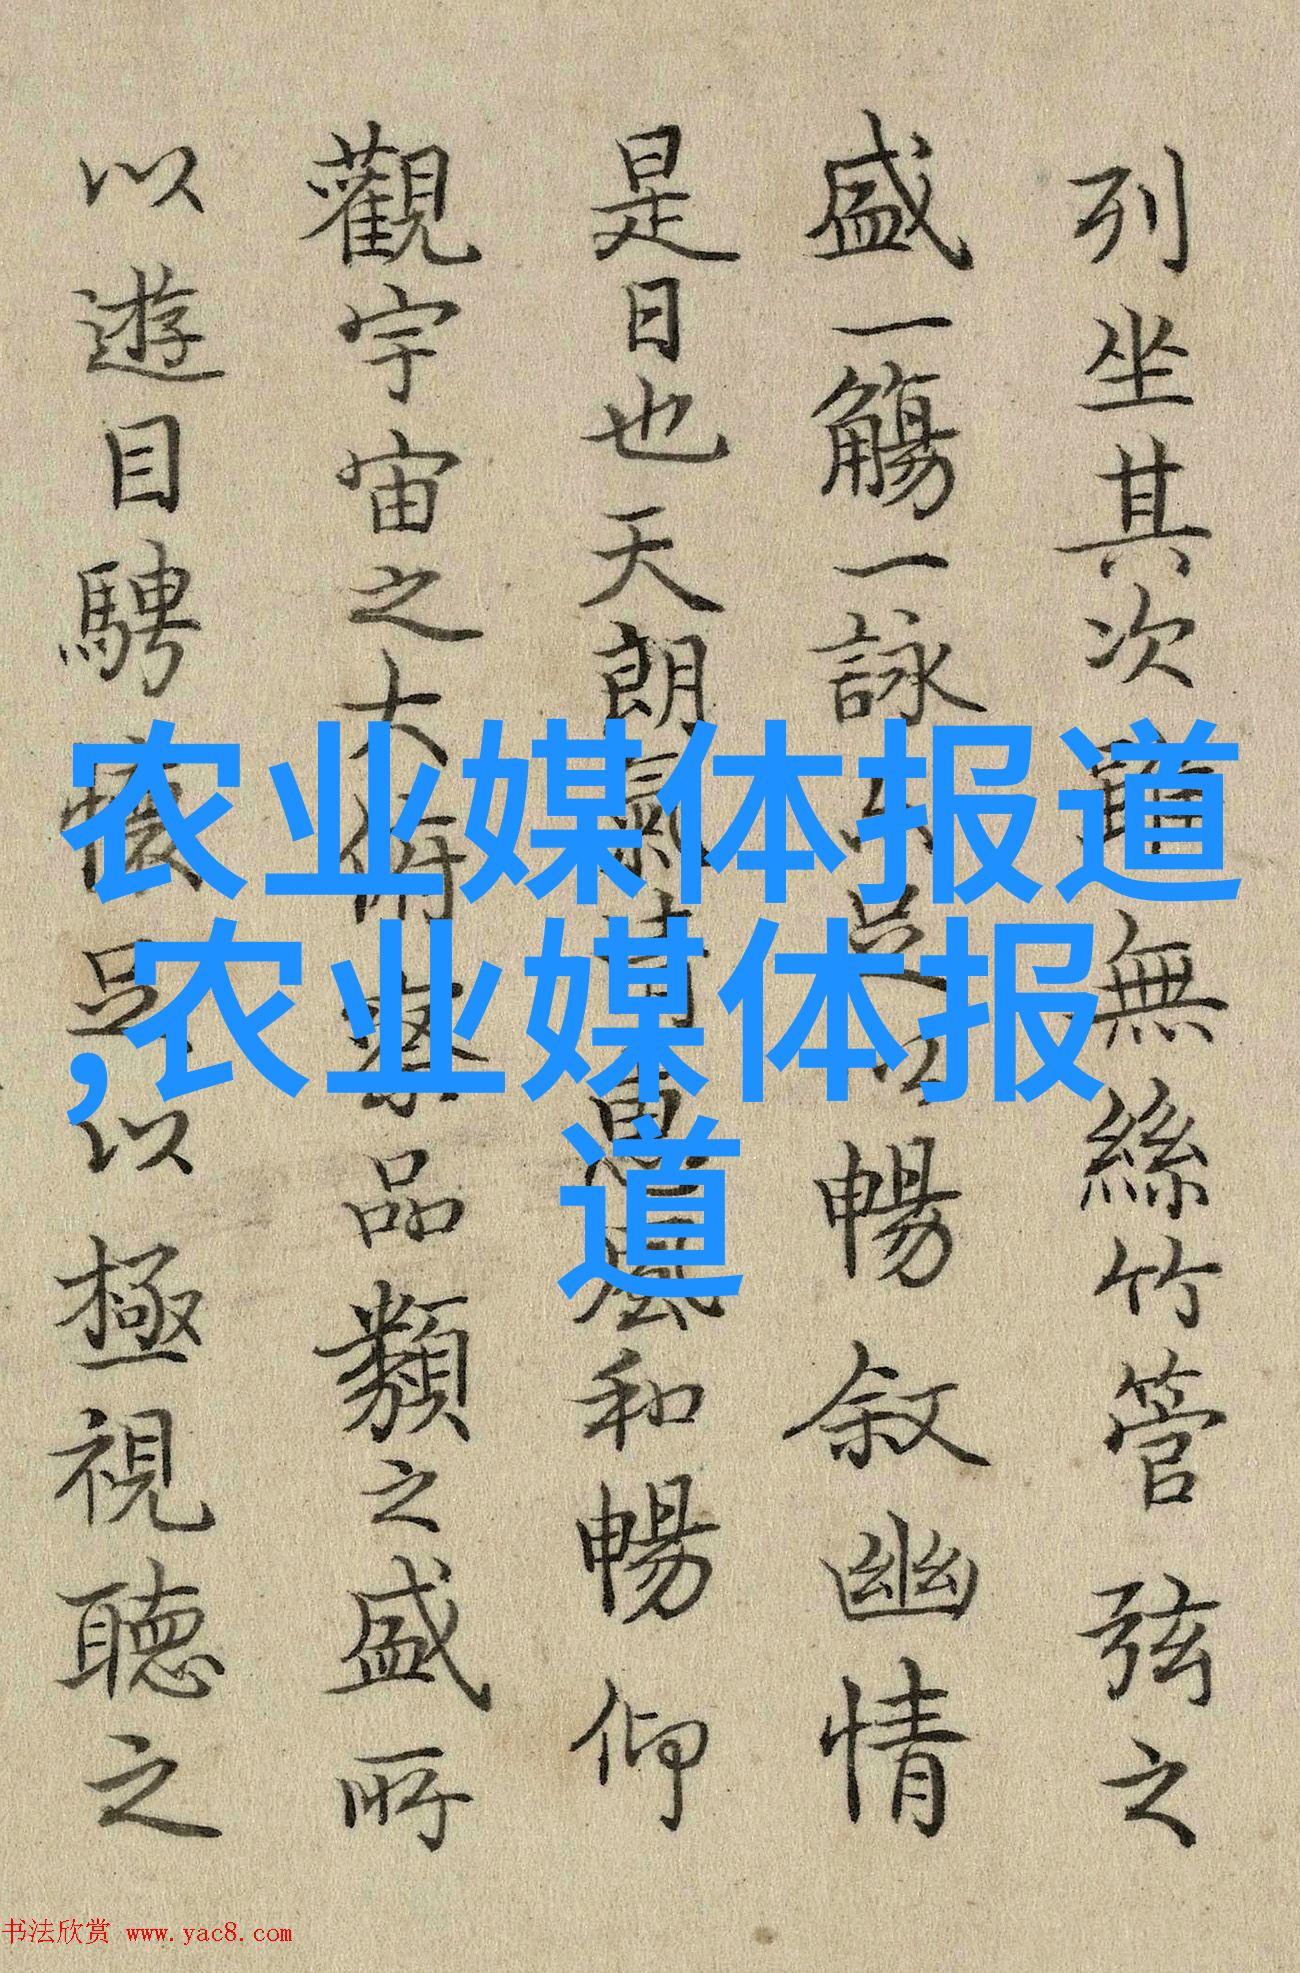 列坐其次雖無絲竹管弦之
盛一觴一詠足暢叙幽情
是日也天朗氣清惠風和暢仰
觀宇宙之大俯察品類之盛所
以遊目騁懷足以極視聽之
农业媒体报道
,农业媒体报
道
书法欣赏 www.yac8.com